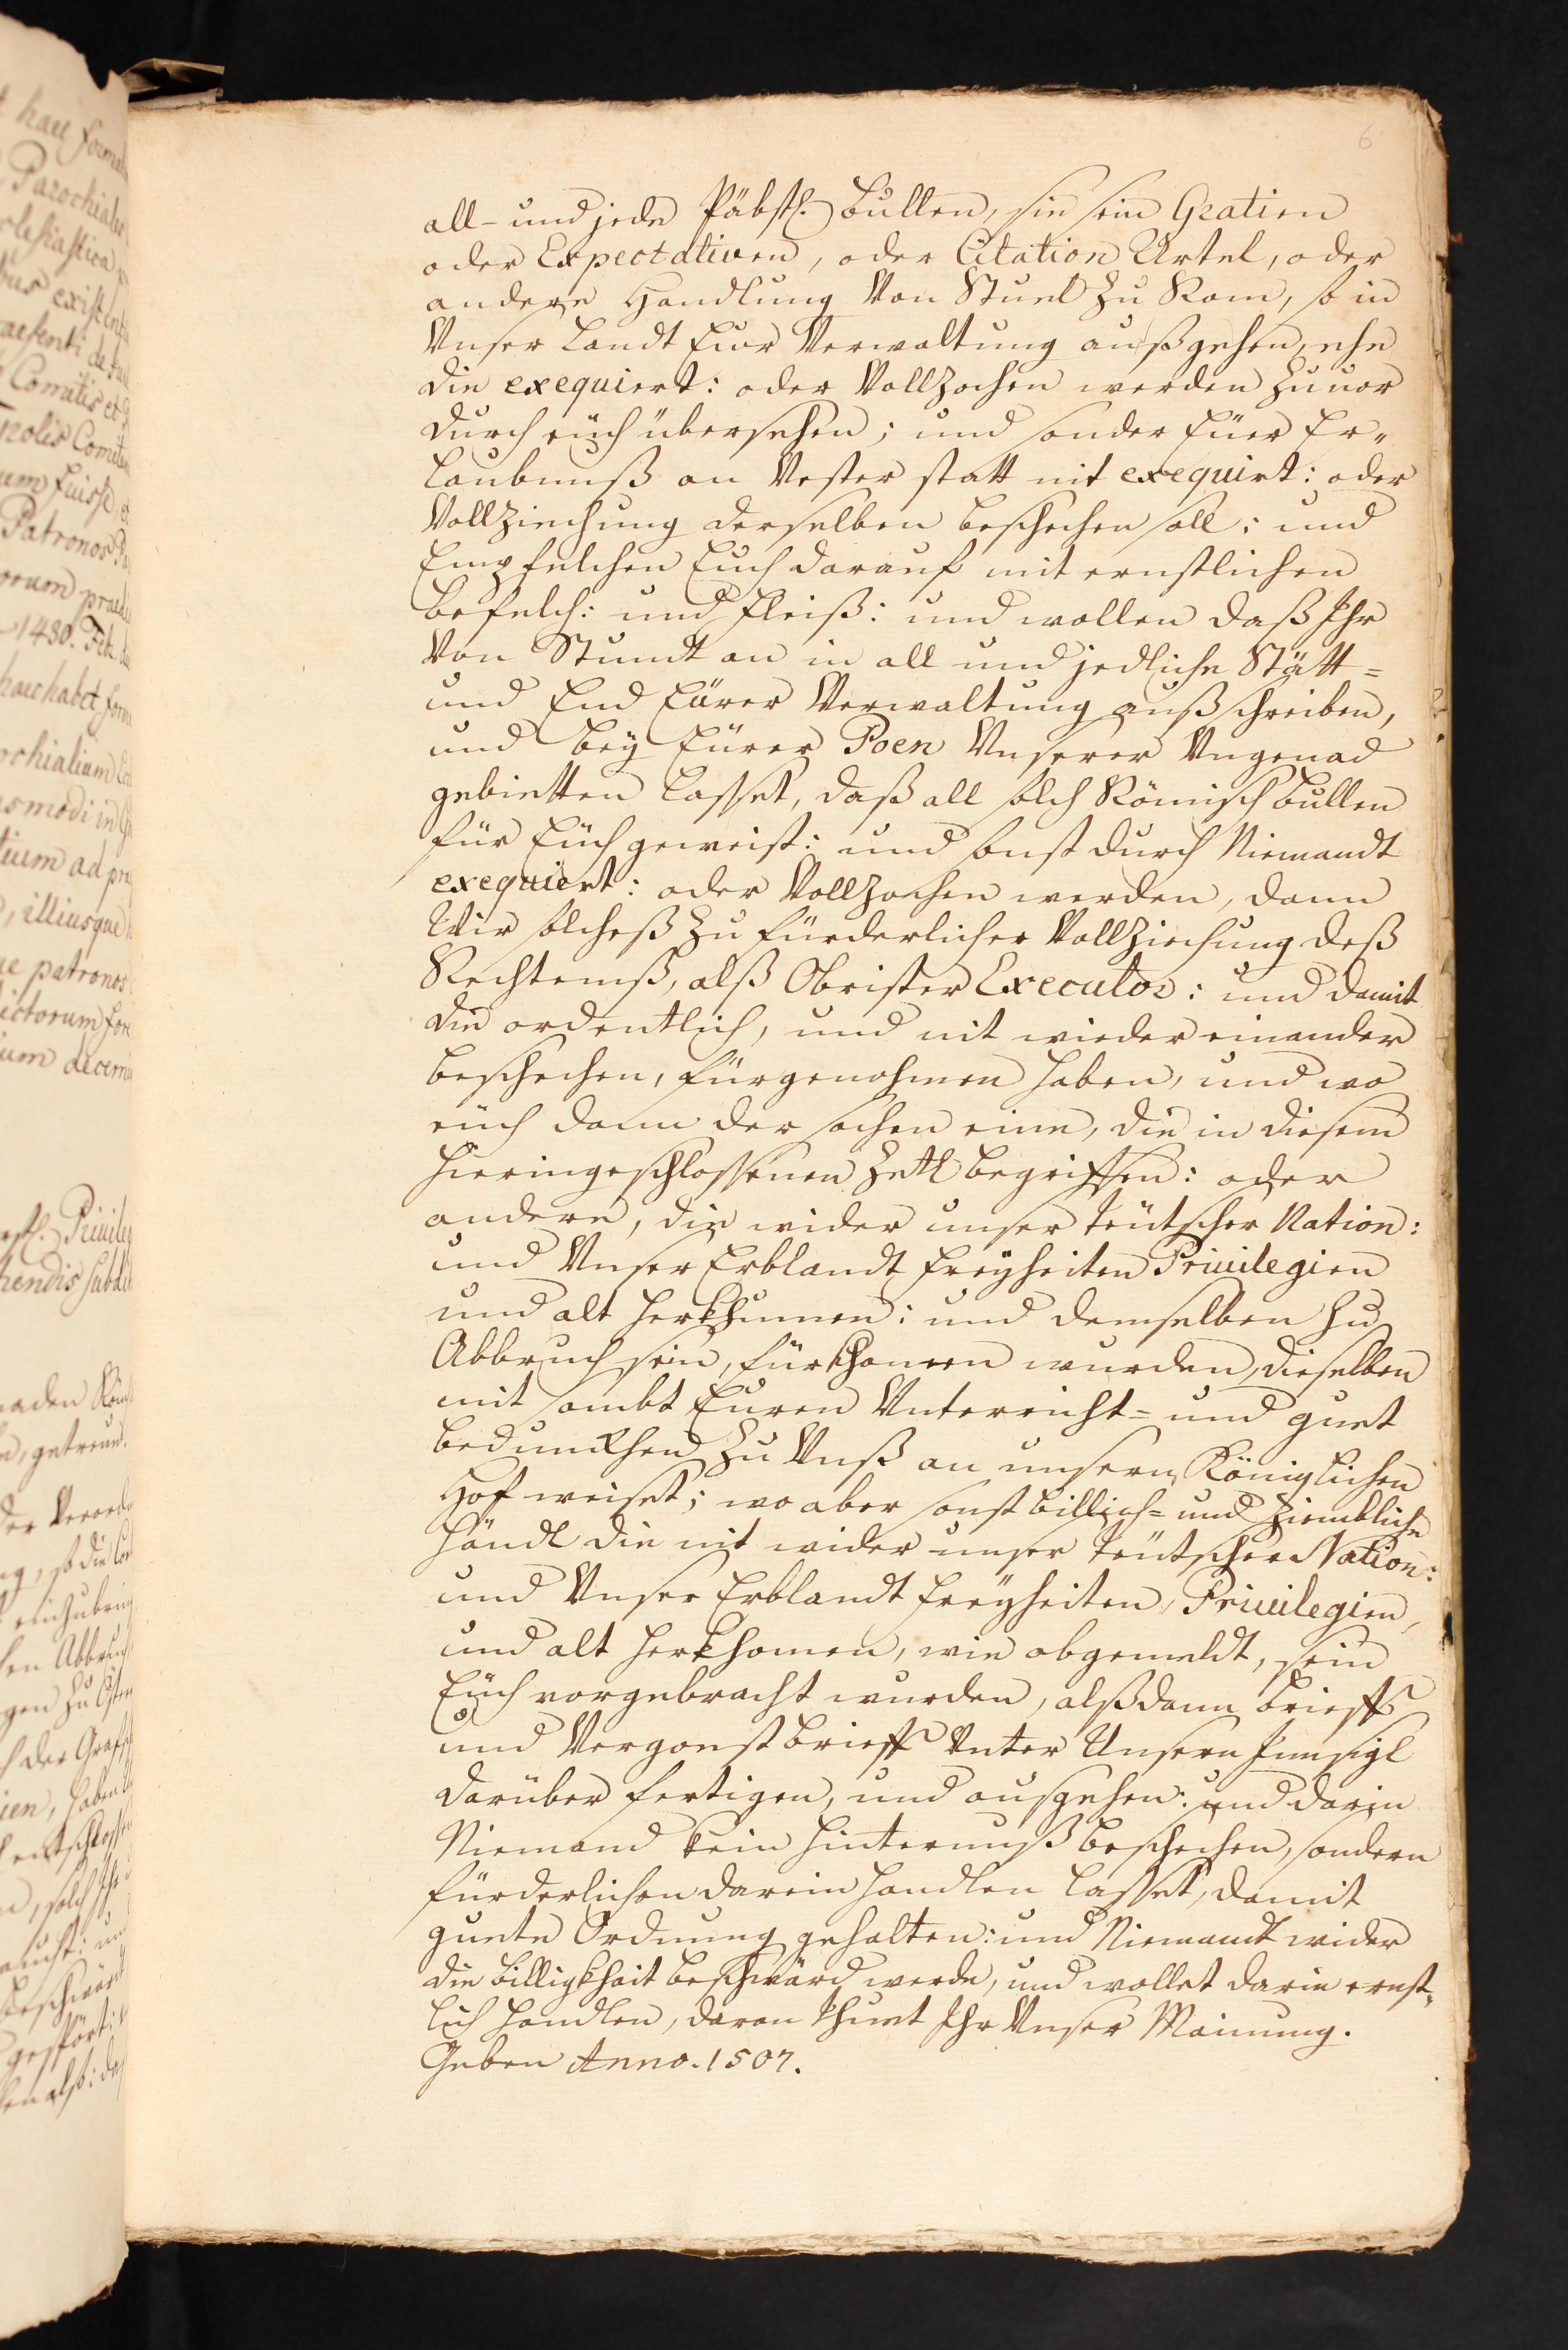 6
all- und jede Päbstl. bullen, sie sein Gratien
oder Expectativen, oder Citation Urtel, oder
andere Handlung Von Stuel Zu Rom, so in
Vnser Landt Eur Verwaltung außgehen, ehe
die exequiert: oder Vollzochen werden Zuuor
durch eüch übersehen; und sonder Eüer Er„
laubnuß an Vester statt nit exequirt: oder
Vollziechung derselben beschechen soll: und
Empfelchen Euch darauf mit ernstlichen
befelch: und fleiß: und wollen daß Ihr
Von Stundt an in all und jedliche Stätt=
und End Eürer Verwaltung außschreiben,
und bey Eürer Poen Vnserer Vngenad
gebietten lasset, daß all solch Römisch bullen
für Eüch geweist: und sonst durch Niemandt
exequiert: oder Vollzochen werden, dann
Wir solcheß Zu fürderlicher Vollziechung deß
Rechtenß, alß Obrister Executor: und damit
die ordentlich, und nit wieder einander
beschechen, fürgenohmen haben, und wo
eüch dann der sachen eine, die in diesem
hieringeschlossenen Zetl begriffen: oder
andere, die wider unser teütscher Nation:
und Vnser Erblandt freyheiten Priuilegien
und alt herkhumen: und demselben Zu
Abbruch sein, fürkhomen wurden, dieselben
mit sambt Euren Unterricht= und guet
bedunckhen Zu Vnß an unsern Königlichen
Hof weiset; wo aber sonst billich= und Ziembliche
händl die nit wider unser teütscher Nation:
und Vnser Erblandt freyheiten, Priuilegien,
und alt herkhomen, wie obgemeldt, sein
Eüch vorgebracht wurden, alßdann brieff
und Vergonstbrieff Unter Unsern Innsigl
darüber fertigen, und ausgehen: und darin
Niemand kein hinternuß beschechen, sondern
fürderlichen darein handlen lasset, damit
guete Ordnung gehalten: und Niemandt wider
die billigkhait beschwärd werde, und wollet darin ernst„
lich handlen, daran thuet Ihr Vnser Mainung.
Geben Anno. 1507.